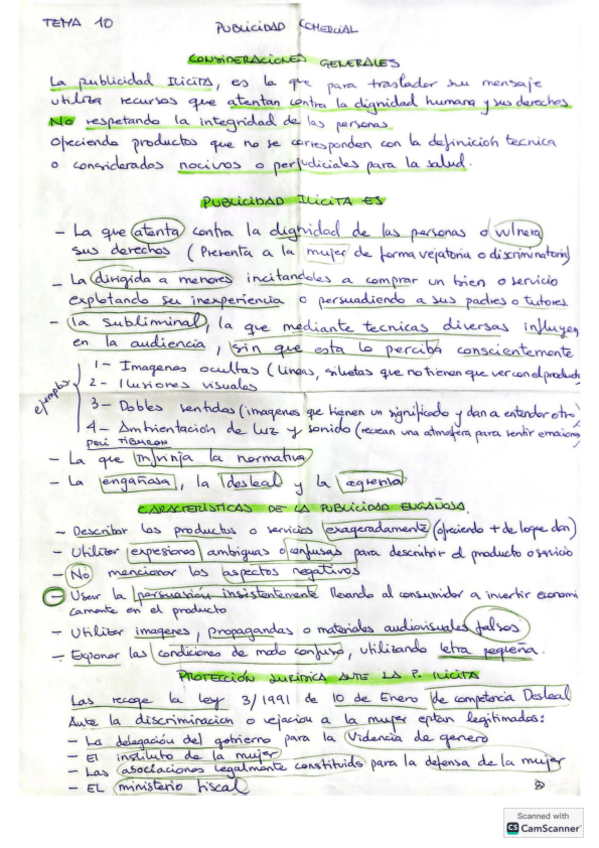 TEMA 10
PUBLICIDAD COMERCIAL
CONSIDERACIONES GENERALES
La publicidad Ilicita, es la que para trasladar su mensaje
utiliza recursos que atentan contra la dignidad humana y sus derechos
No respetando la integridad de las personas
Ofreciendo productos que no se corresponden con la definición tecnica
o considerados nocivos o perjudiciales para la salud.
PUBLICIDAD ILICITA ES
- La que atenta contra la dignidad de las personas o vulnera
sus derechos (Presenta a la mujer de forma vejatoria o discriminatoria)
- La dirigida a menores incitandoles a comprar un bien o servicio
explotando su inexperiencia o persuadiendo a sus padres o tutores.
- la subliminal, la que mediante tecnicas diversas influyen
en la audiencia, sin que esta lo perciba conscientemente
ejemplos
1- Imagenes ocultas (lineas, siluetas que no tienen que ver con el producto
2- Ilusiones visuales
3- Dobles sentidos (imagenes que tienen un significado y dan a entender otro)
4- Ambientación de luz y sonido (recrean una atmosfera para sentir emociones
PELI TIBURON
- La que infrinja la normativa
- La engañosa, la desleal y la agresiva
CARACTERISTICAS DE LA PUBLICIDAD ENGAÑOSA.
- Describir los productos o servicios exageradamente (ofreciendo + de lo que dan)
- Utilizar expresiones ambiguas o confusas para describir el producto o servicio
- No mencionar los aspectos negativos
- Usar la persuasión insistentemente llevando al consumidor a invertir economi
camente en el producto
- Utilizar imagenes, propagandas o materiales audiovisuales falsos
- Exponer las condiciones de modo confuso, utilizando letra pequeña.
PROTECCIÓN JURIDICA ANTE LA P. ILICITA
Las recoge la ley 3/1991 de 10 de Enero de competencia Desleal
Ante la discriminacion o vejacion a la mujer estan legitimados:
- La delegación del gobierno para la Violencia de genero
- El instituto de la mujer
- Las asociaciones legalmente constituido para la defensa de la mujer
- EL ministerio fiscal
Scanned with
CS CamScanner